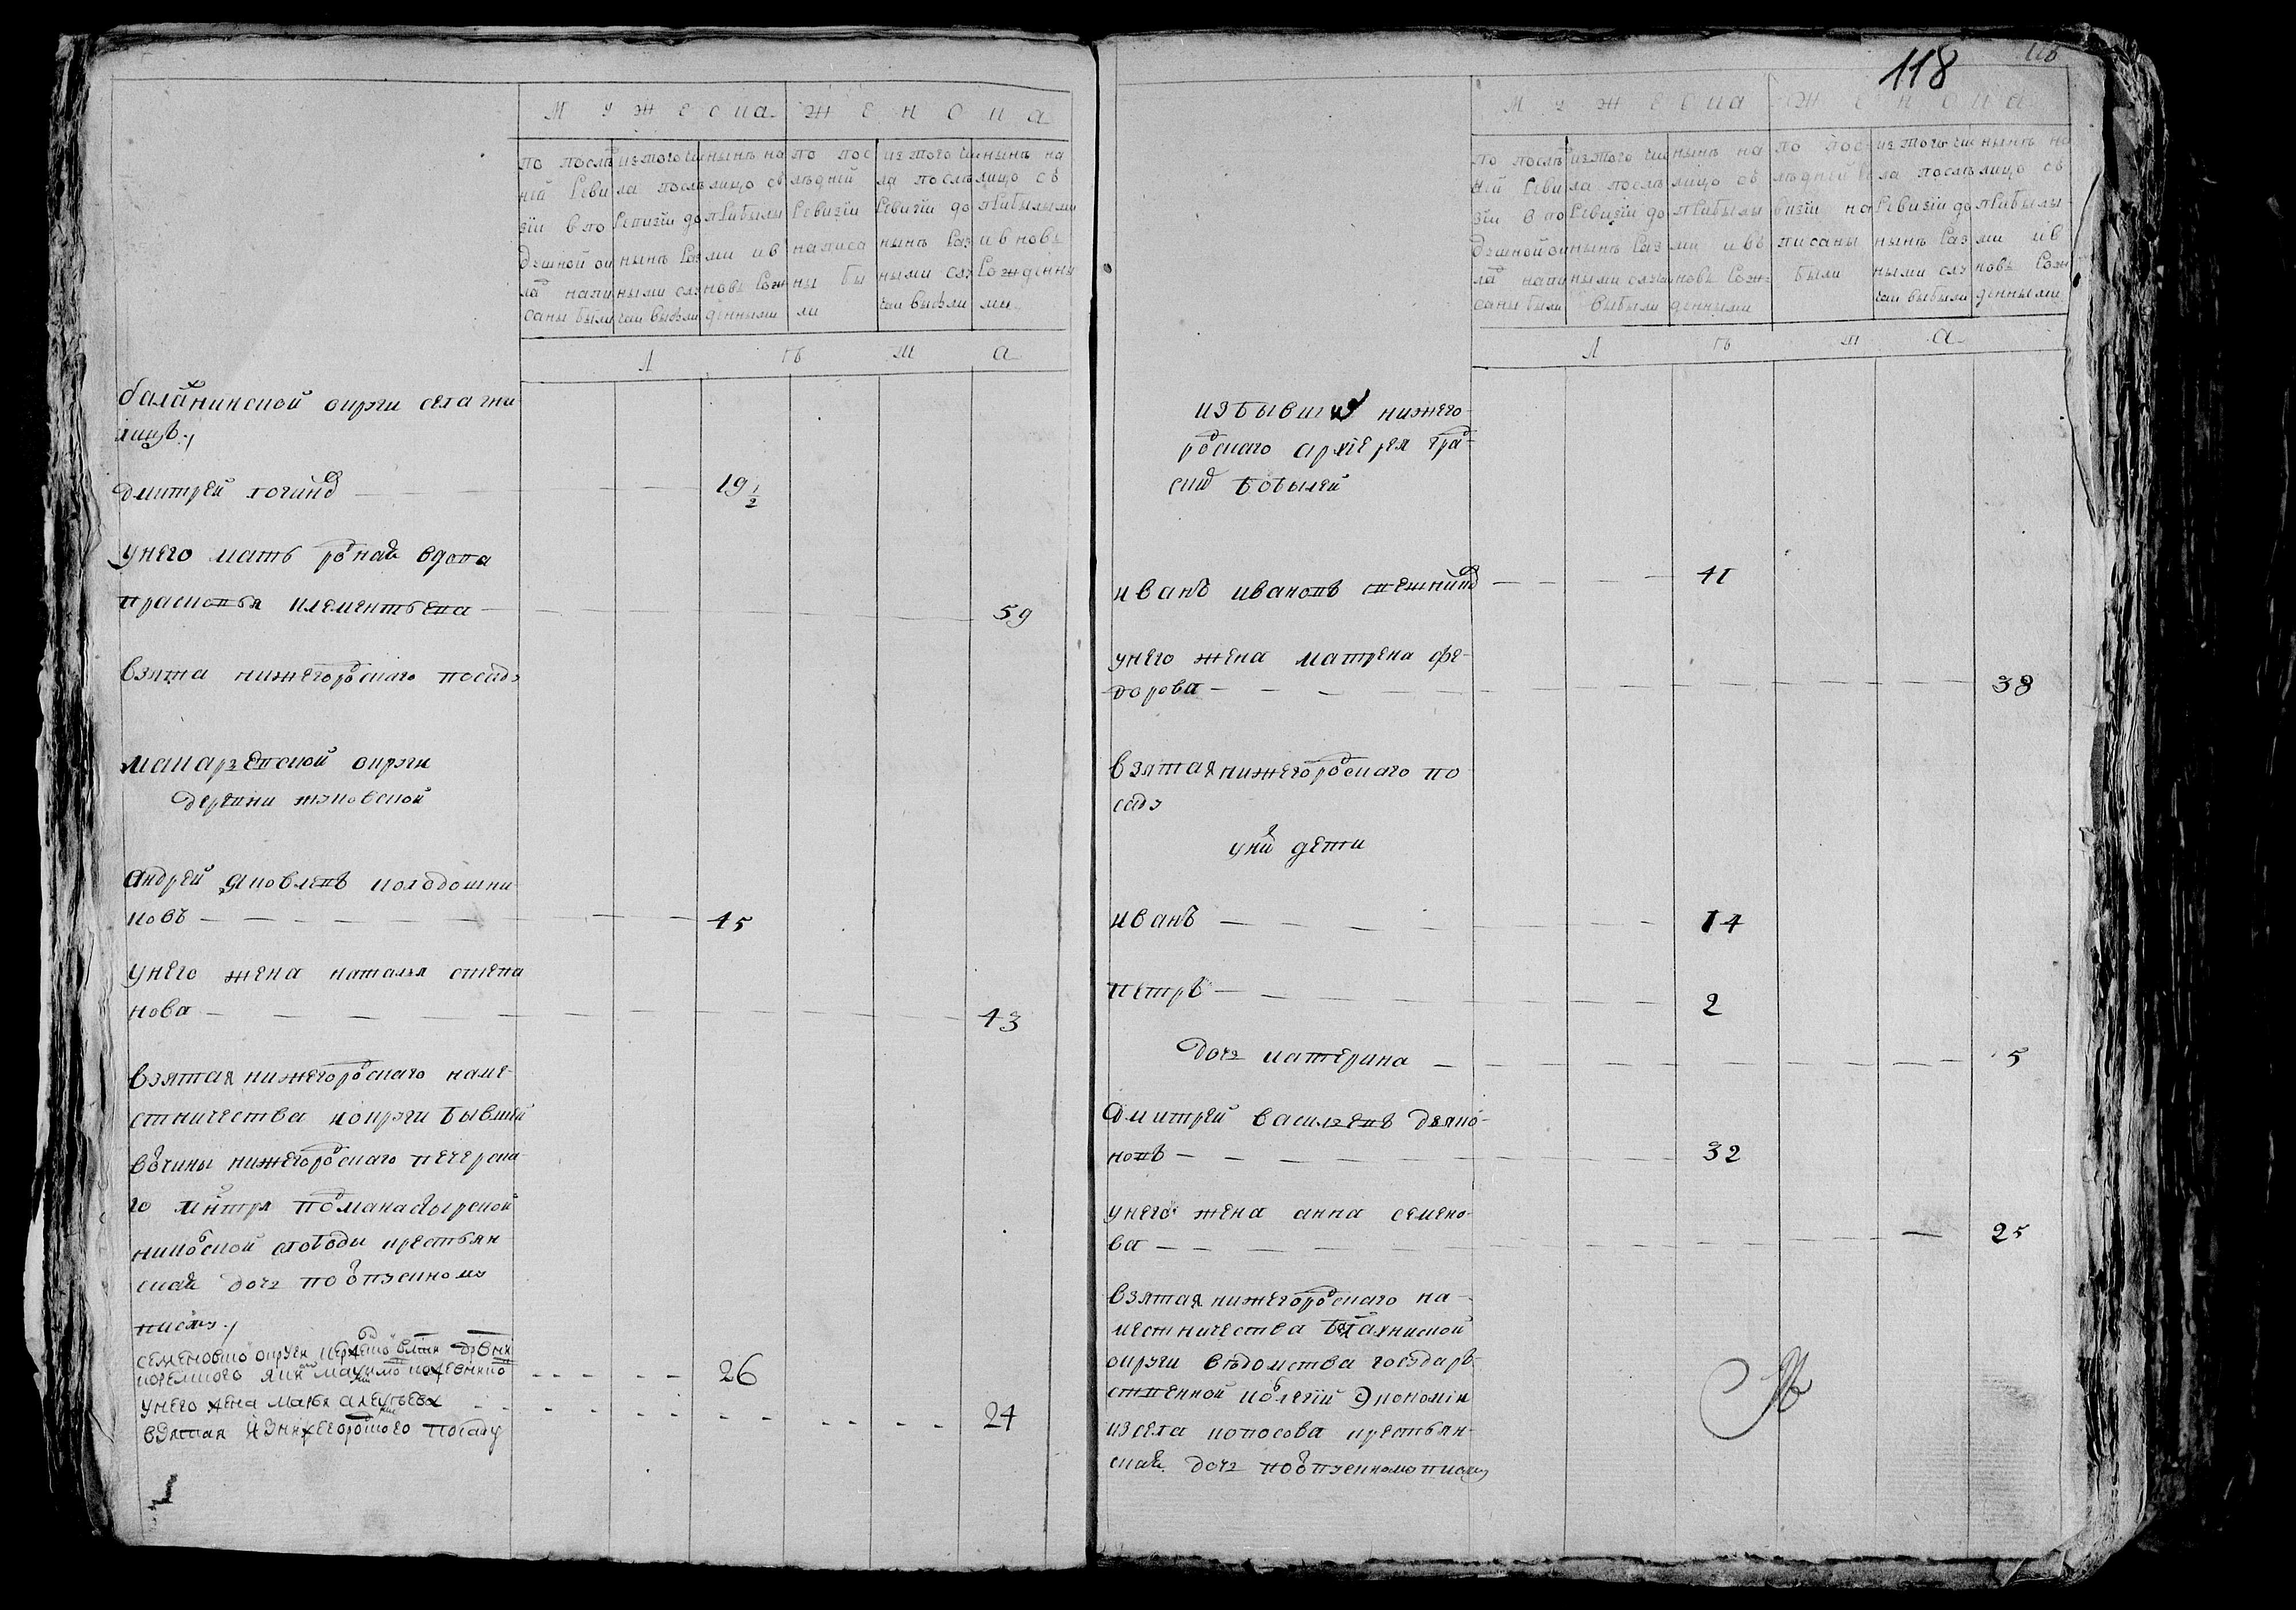 М у ж е с ка
ж е н с к а
по послѣд
ней реви
зіи в по
душной ок
лад напи
саны были
из того чис
ла послѣ
ревизіи до
нынѣ раз
ными слу
чаи выбыли
нынѣ на
лицо съ
прибылы
ми и в
новь рож
денными
по пос
лѣдней
ревизіи
написа
ны бы
ли
из того чис
ла послѣ
ревизіи до
нынѣ раз
ными слу
чаи выбыли
нынѣ на
лицо съ
прибылыми
и вновь
рожденны
ми
Л ѣ т а
балахнинской округи села гни
лицъ
дмитрей логинов 19 1/2
у него мать роднаꙗ вдова
прасковья клементьева 59
взята нижегородскаго посаду
макарьевской округи
деревни жуковской
андрей яковлевъ колодошни
ковъ 45
у него жена наталья степа
нова 43
взятая нижегородскаго наме-
стничества и округи бывшей
вотчины нижегородскаго печерска
го мнтря подманастырской
никольской слободы крестьян
скаꙗ дочь по отпускному
письму
26
у него жена марья 24
взятая из нижегородского посаду
118
118
М у ж е с ка
ж е н с к а
по послѣд
ней реви
зіи в по
душной ок
лад напи
саны были
из того чис
ла послѣ
ревизіи до
нынѣ раз
ными случаи
выбыли
нынѣ на
лицо съ
прибылы
ми и въ
новь рож
денными
по пос
лѣдней ре
визіи на
писаны
были
из того чис
ла послѣ
ревизіи до
нынѣ раз
ными слу
чаи выбыли
нынѣ на
лицо съ
прибылы
ми и в
новь рож
денными
Л ѣ т а
из бывших нижего-
родскаго архіерея град-
ских бобылей
иванъ ивановъ снежнинъ 41
у него жена матрена фе-
дорова 38
взятая нижегородскаго по
саду
у них дети
иванъ 14
петръ 2
дочь катерина 5
дмитрей васильевъ дьяко-
новъ 32
у него жена анна семено-
ва 25
взятая нижегородскаго на-
местничества балахниской
округи вѣдомства государ-
ственной колегіи экономіи
из села копосова крестьян-
скаꙗ дочь по отпускному письму